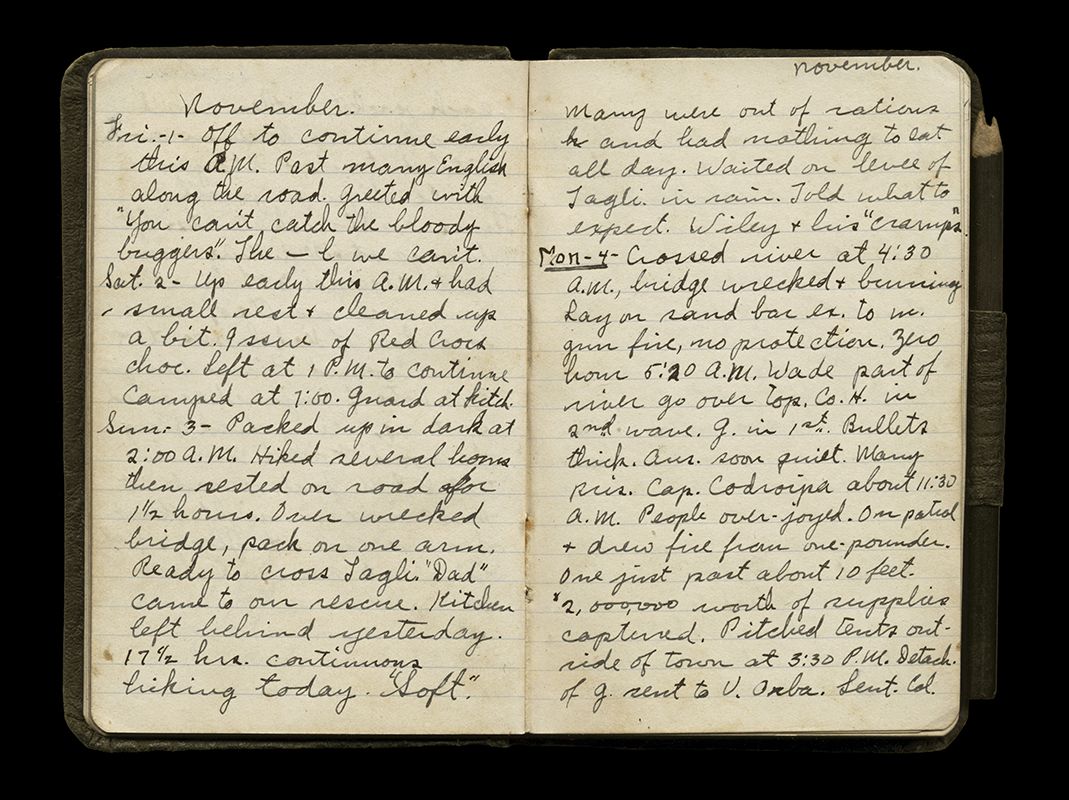 November.
Fri.-1- Off to continue early
this A.M. Past many English
along the road. Greeted with
"You can't catch the bloody
buggers". The — l we can't.
Sat. 2- Up early this A.M. + had
small rest + cleaned up
a bit. Issue of Red Cross
choc. Left at 1 P.M. to continue
Camped at 7:00. Guard at kitch.
Sun. 3- Packed up in dark at
2:00 A.M. Hiked several hours
then rested on road for
1 1/2 hours. Over wrecked
bridge, pack on one arm.
Ready to cross Tagli. "Dad"
came to our rescue. Kitchen
left behind yesterday.
17 1/2 hrs. continuous
hiking today. "Soft".
November.
Many were out of rations
and had nothing to eat
all day. Waited on levee of
Tagli. in rain. Told what to
expect. Wiley + his "cramps".
Mon-4- Crossed river at 4:30
A.M., bridge wrecked + burning
Lay on sand bar ex. to m.
gun fire, no protection. Zero
hour 5:20 A.M. Wade part of
river go over top. Co. H. in
2nd wave. G. in 1st. Bullets
thick. Aus. soon quiet. Many
pris. Cap. Codroipa about 11:30
A.M. People over-joyed. On patrol
+ drew fire from one-pounder.
One just past about 10 feet.
$2,000,000 worth of supplies
captured. Pitched tents out-
side of town at 3:30 P.M. Detach.
of G. sent to V. Orba. Lent. Col.